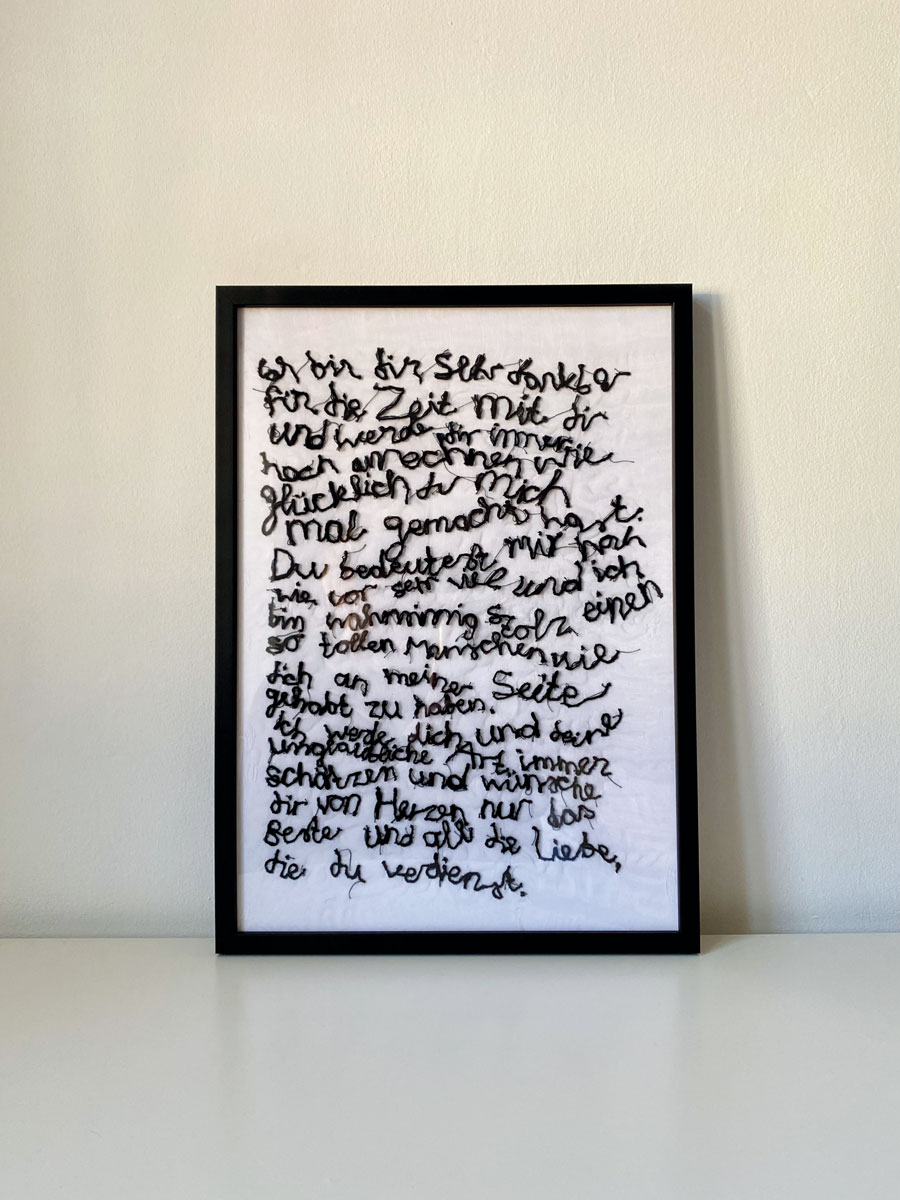 ich bin dir sehr dankbar
für die Zeit mit dir
und werde dir immer
hoch anrechnen wie
glücklich du mich
mal gemacht hast.
Du bedeutest mir nach
wie vor sehr viel und ich
bin wahnsinnig stolz einen
so tollen Menschen wie
dich an meiner Seite
gehabt zu haben.
Ich werde dich und deine
unglaubliche Art immer
schätzen und wünsche
dir von Herzen nur das
Beste und all die Liebe,
die du verdienst.